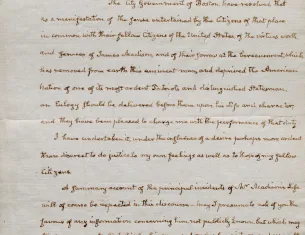 The City Government of Boston, have resolved that
as a manifestation of the sense entertained by the Citizens of that place
in common with their fellow Citizens of the United States, of the virtues worth
and services of James Madison, and of their sorrow at the bereavement which
has removed from earth this eminent man, and deprived the American
Nation of one of its most ardent Patriots and distinguished Statesmen
an Eulogy should be delivered before them upon his life and character
and they have been pleased to charge me with the performance of that duty
I have undertaken it, under the influence of a desire perhaps more ardent
than to do justice to my own feelings as well as to those of my fellow
Citizens
A summary account of the principal incidents of Mr Madison's Life
will of course be expected in this discourse. may I presume to ask of you the
favour of any information concerning him not publicly known, but which may